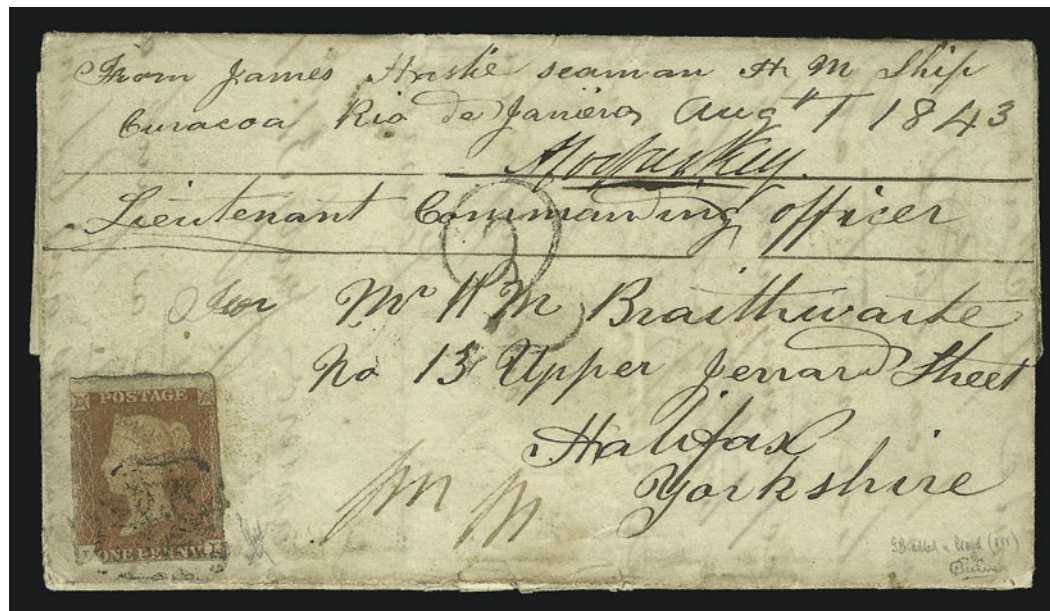 From James seaman H M Ship
Curacoa Rio de Janiero Augt 1 1843
Lieutenant Commanding officer
For Mr H M Braithwaite
No 13 Upper Jerrard Street
Halifax
Yorkshire
2
POSTAGE
ONE PENNY
GB added in